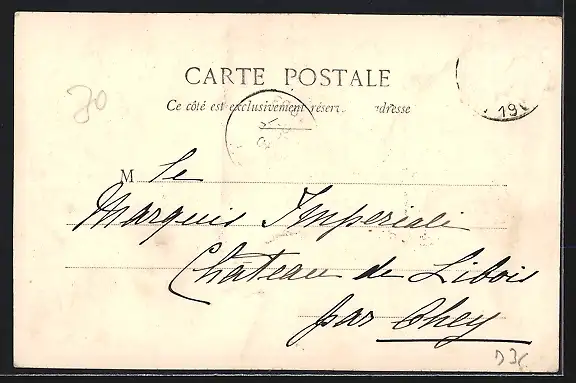 70
CARTE POSTALE
Ce côté est exclusivement réser adresse
19
M le
Marquis Imperiali
Chateau de Libois
par Ohey